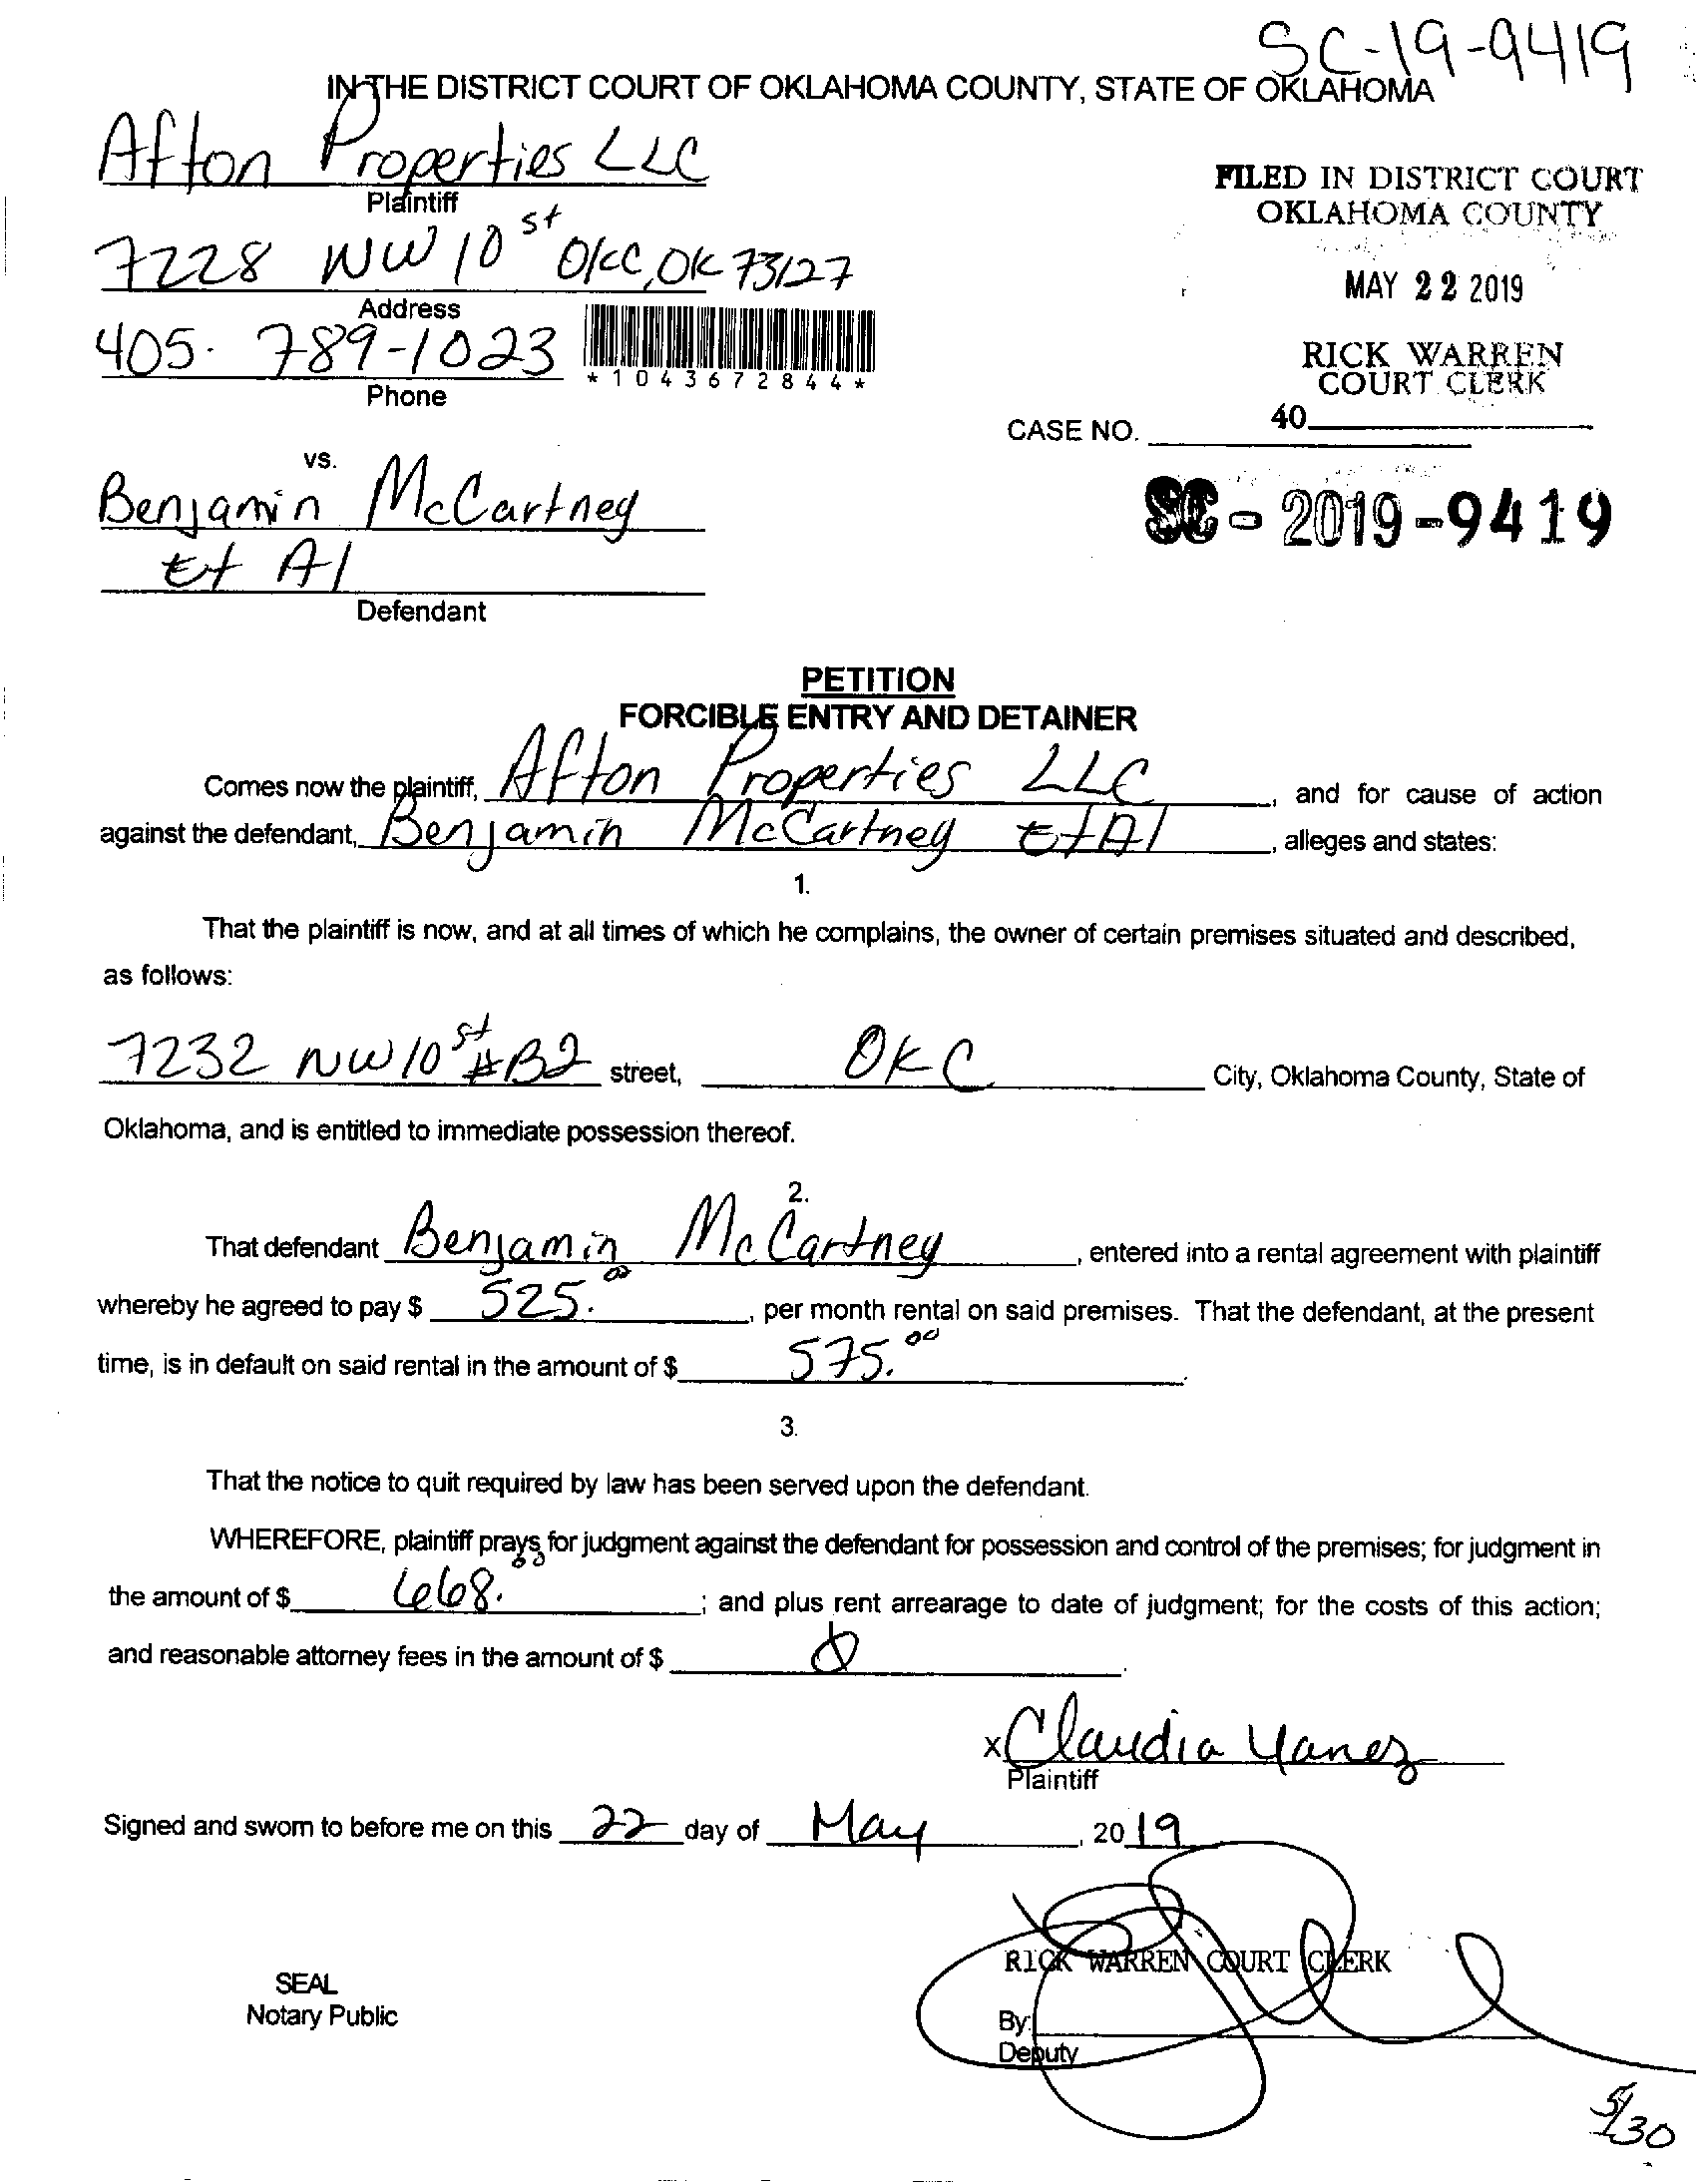 SC-19-9419
IN THE DISTRICT COURT OF OKLAHOMA COUNTY, STATE OF OKLAHOMA
Afton Properties LLC
Plaintiff
FILED IN DISTRICT COURT
OKLAHOMA COUNTY
7228 NW 10 st OKC, OK 73127
Address
MAY 22 2019
405. 789-1023
Phone
*1043672844*
RICK WARREN
COURT CLERK
40
CASE NO.
vs.
Benjamin McCartney
Et Al
Defendant
SC - 2019 - 9419
PETITION
FORCIBLE ENTRY AND DETAINER
Comes now the plaintiff, Afton Properties LLC, and for cause of action
against the defendant, Benjamin McCartney Et Al, alleges and states:
1.
That the plaintiff is now, and at all times of which he complains, the owner of certain premises situated and described,
as follows:
7232 NW 10 st #B2 street, OKC City, Oklahoma County, State of
Oklahoma, and is entitled to immediate possession thereof.
2.
That defendant Benjamin McCartney, entered into a rental agreement with plaintiff
whereby he agreed to pay $ 525.00, per month rental on said premises. That the defendant, at the present
time, is in default on said rental in the amount of $ 575.00.
3.
That the notice to quit required by law has been served upon the defendant.
WHEREFORE, plaintiff prays for judgment against the defendant for possession and control of the premises; for judgment in
the amount of $ 668.00; and plus rent arrearage to date of judgment; for the costs of this action;
and reasonable attorney fees in the amount of $ 0.
x Claudia Yanez
Plaintiff
Signed and sworn to before me on this 22 day of May, 2019
RICK WARREN COURT CLERK
SEAL
Notary Public
By:
Deputy
5/30